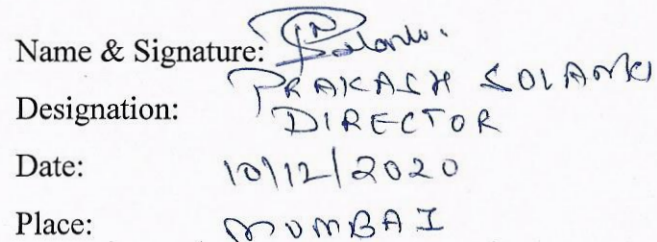 Name & Signature: P Solanki.
PRAKASH SOLANKI
Designation: DIRECTOR
Date: 10/12/2020
Place: MUMBAI